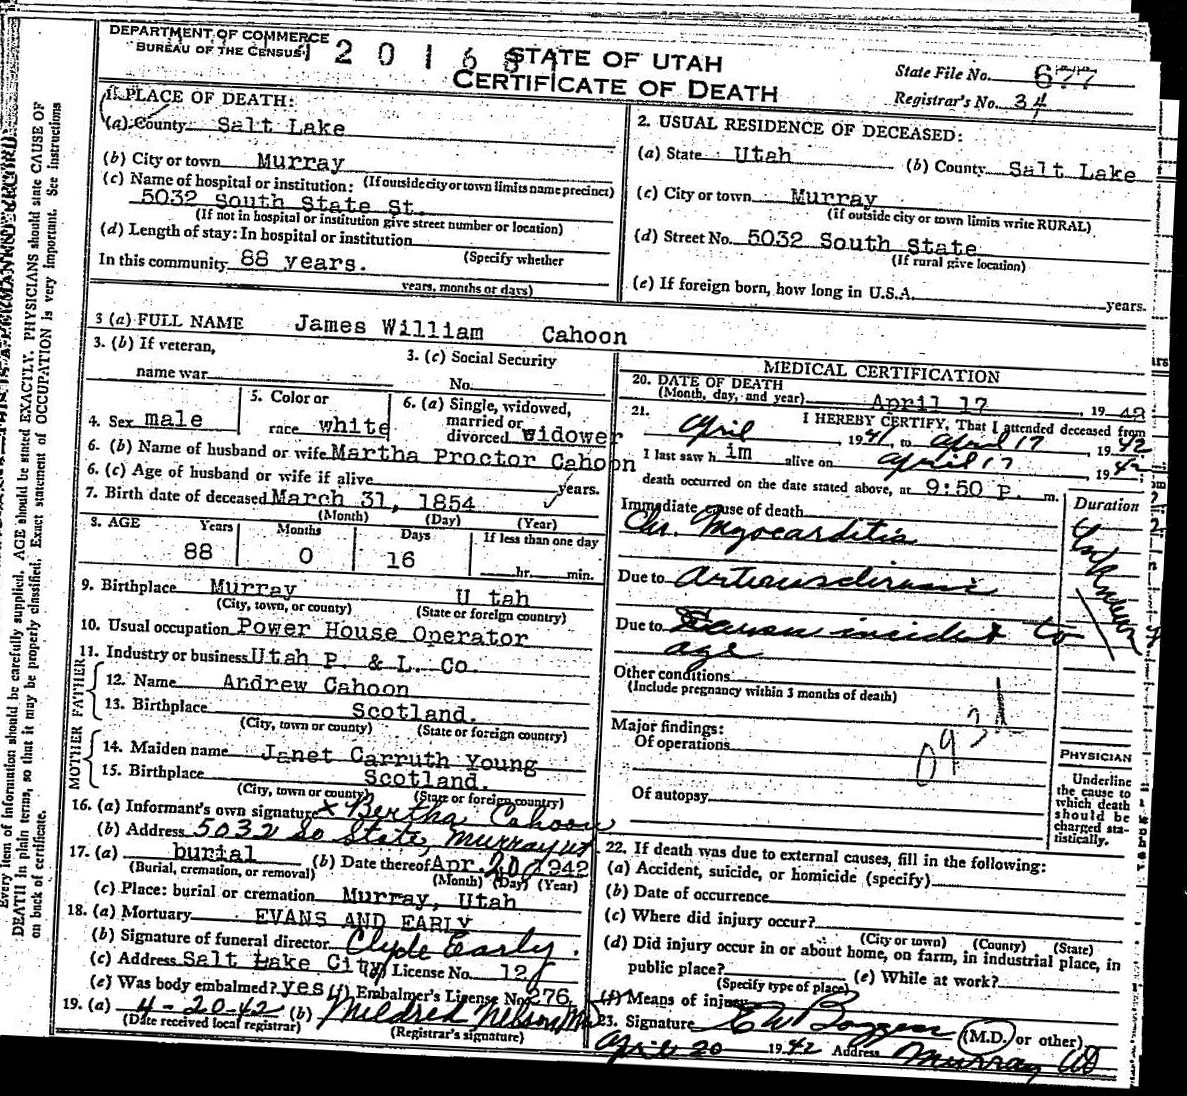 DEPARTMENT OF COMMERCE
BUREAU OF THE CENSUS
STATE OF UTAH
CERTIFICATE OF DEATH
State File No. 677
Registrar's No. 34
1. PLACE OF DEATH:
(a) County Salt Lake
(b) City or town Murray
(c) Name of hospital or institution: (If outside city or town limits name precinct)
5032 South State St.
(If not in hospital or institution give street number or location)
(d) Length of stay: In hospital or institution
(Specify whether
In this community 88 years.
years, months or days)
2. USUAL RESIDENCE OF DECEASED:
(a) State Utah (b) County Salt Lake
(c) City or town Murray
(if outside city or town limits write RURAL)
(d) Street No. 5032 South State
(If rural give location)
(e) If foreign born, how long in U.S.A. years.
3 (a) FULL NAME James William Cahoon
3. (b) If veteran,
name war
3. (c) Social Security
No.
4. Sex male
5. Color or
race white
6. (a) Single, widowed,
married or
divorced widower
6. (b) Name of husband or wife Martha Proctor Cahoon
6. (c) Age of husband or wife if alive years.
7. Birth date of deceased March 31, 1854
(Month) (Day) (Year)
8. AGE Years Months Days If less than one day
88 0 16 hr. min.
9. Birthplace Murray U tah
(City, town, or county) (State or foreign country)
10. Usual occupation Power House Operator
11. Industry or business Utah P. & L. Co.
FATHER
12. Name Andrew Cahoon
13. Birthplace Scotland.
(City, town or county) (State or foreign country)
MOTHER
14. Maiden name Janet Carruth Young
15. Birthplace Scotland.
(City, town or county) (State or foreign country)
16. (a) Informant's own signature x Bertha Cahoon
(b) Address 5032 So State, Murray Ut.
17. (a) burial (b) Date thereof Apr. 20 1942
(Burial, cremation, or removal) (Month) (Day) (Year)
(c) Place: burial or cremation Murray, Utah
18. (a) Mortuary EVANS AND EARLY
(b) Signature of funeral director Clyde Early.
(c) Address Salt Lake City (d) License No. 12
(e) Was body embalmed? yes (f) Embalmer's License No 276
19. (a) 4-20-42 (b) Mildred Nelson
(Date received local registrar) (Registrar's signature)
MEDICAL CERTIFICATION
20. DATE OF DEATH
(Month, day, and year) April 17, 19 42
21. I HEREBY CERTIFY, That I attended deceased from
April 1941 to April 17, 1942
I last saw h im alive on April 17 1942
death occurred on the date stated above, at 9:50 P. m.
Immediate cause of death
Duration
Chr. Myocarditis
Unknown
Due to Arteriosclerosis
Due to incident to
age
Other conditions
(Include pregnancy within 3 months of death)
Major findings:
Of operations
093d
Of autopsy
PHYSICIAN
Underline
the cause to
which death
should be
charged sta-
tistically.
22. If death was due to external causes, fill in the following:
(a) Accident, suicide, or homicide (specify)
(b) Date of occurrence
(c) Where did injury occur?
(City or town) (County) (State)
(d) Did injury occur in or about home, on farm, in industrial place, in
public place? (e) While at work?
(Specify type of place)
(f) Means of injury
23. Signature (M.D. or other)
April 20 1942 Address Murray Ut
Every item of information should be carefully supplied. AGE should be stated EXACTLY. PHYSICIANS should state CAUSE OF
DEATH in plain terms, so that it may be properly classified. Exact statement of OCCUPATION is very important. See instructions
on back of certificate.